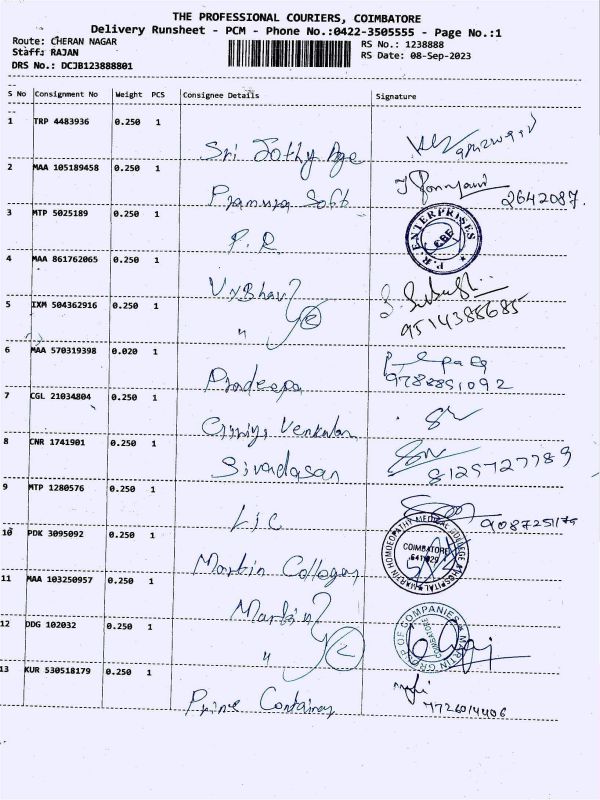 THE PROFESSIONAL COURIERS, COIMBATORE
Delivery Runsheet - PCM - Phone No.:0422-3505555 - Page No.:1
Route: CHERAN NAGAR
RS No.: 1238888
Staff: RAJAN
RS Date: 08-Sep-2023
DRS No.: DCJB123888801
S No Consignment No Weight PCS Consignee Details Signature
1 TRP 4483936 0.250 1 Sri Jothy Age
2 MAA 105189458 0.250 1 Pramura Soft 2642087.
3 MTP 5025189 0.250 1 P.R
P.R. ENTERPRISES CBE
4 MAA 861762065 0.250 1
5 IXM 504362916 0.250 1 " 2 9514388685
6 MAA 570319398 0.020 1 Pradeepa 9788851092
7 CGL 21034804 0.250 1 Venkatan
8 CNR 1741901 0.250 1 Sivadasan 8125727789
9 MTP 1280576 0.250 1 LIC
10 PDK 3095092 0.250 1 Martin Collogey
MARTIN HOMOEOPATHY MEDICAL COLLEGE & HOSPITAL COIMBATORE
11 MAA 103250957 0.250 1 Martin
12 DDG 102032 0.250 1 " 2
MARTIN GROUP OF COMPANIES COIMBATORE
13 KUR 530518179 0.250 1 Prime Container 7726014406